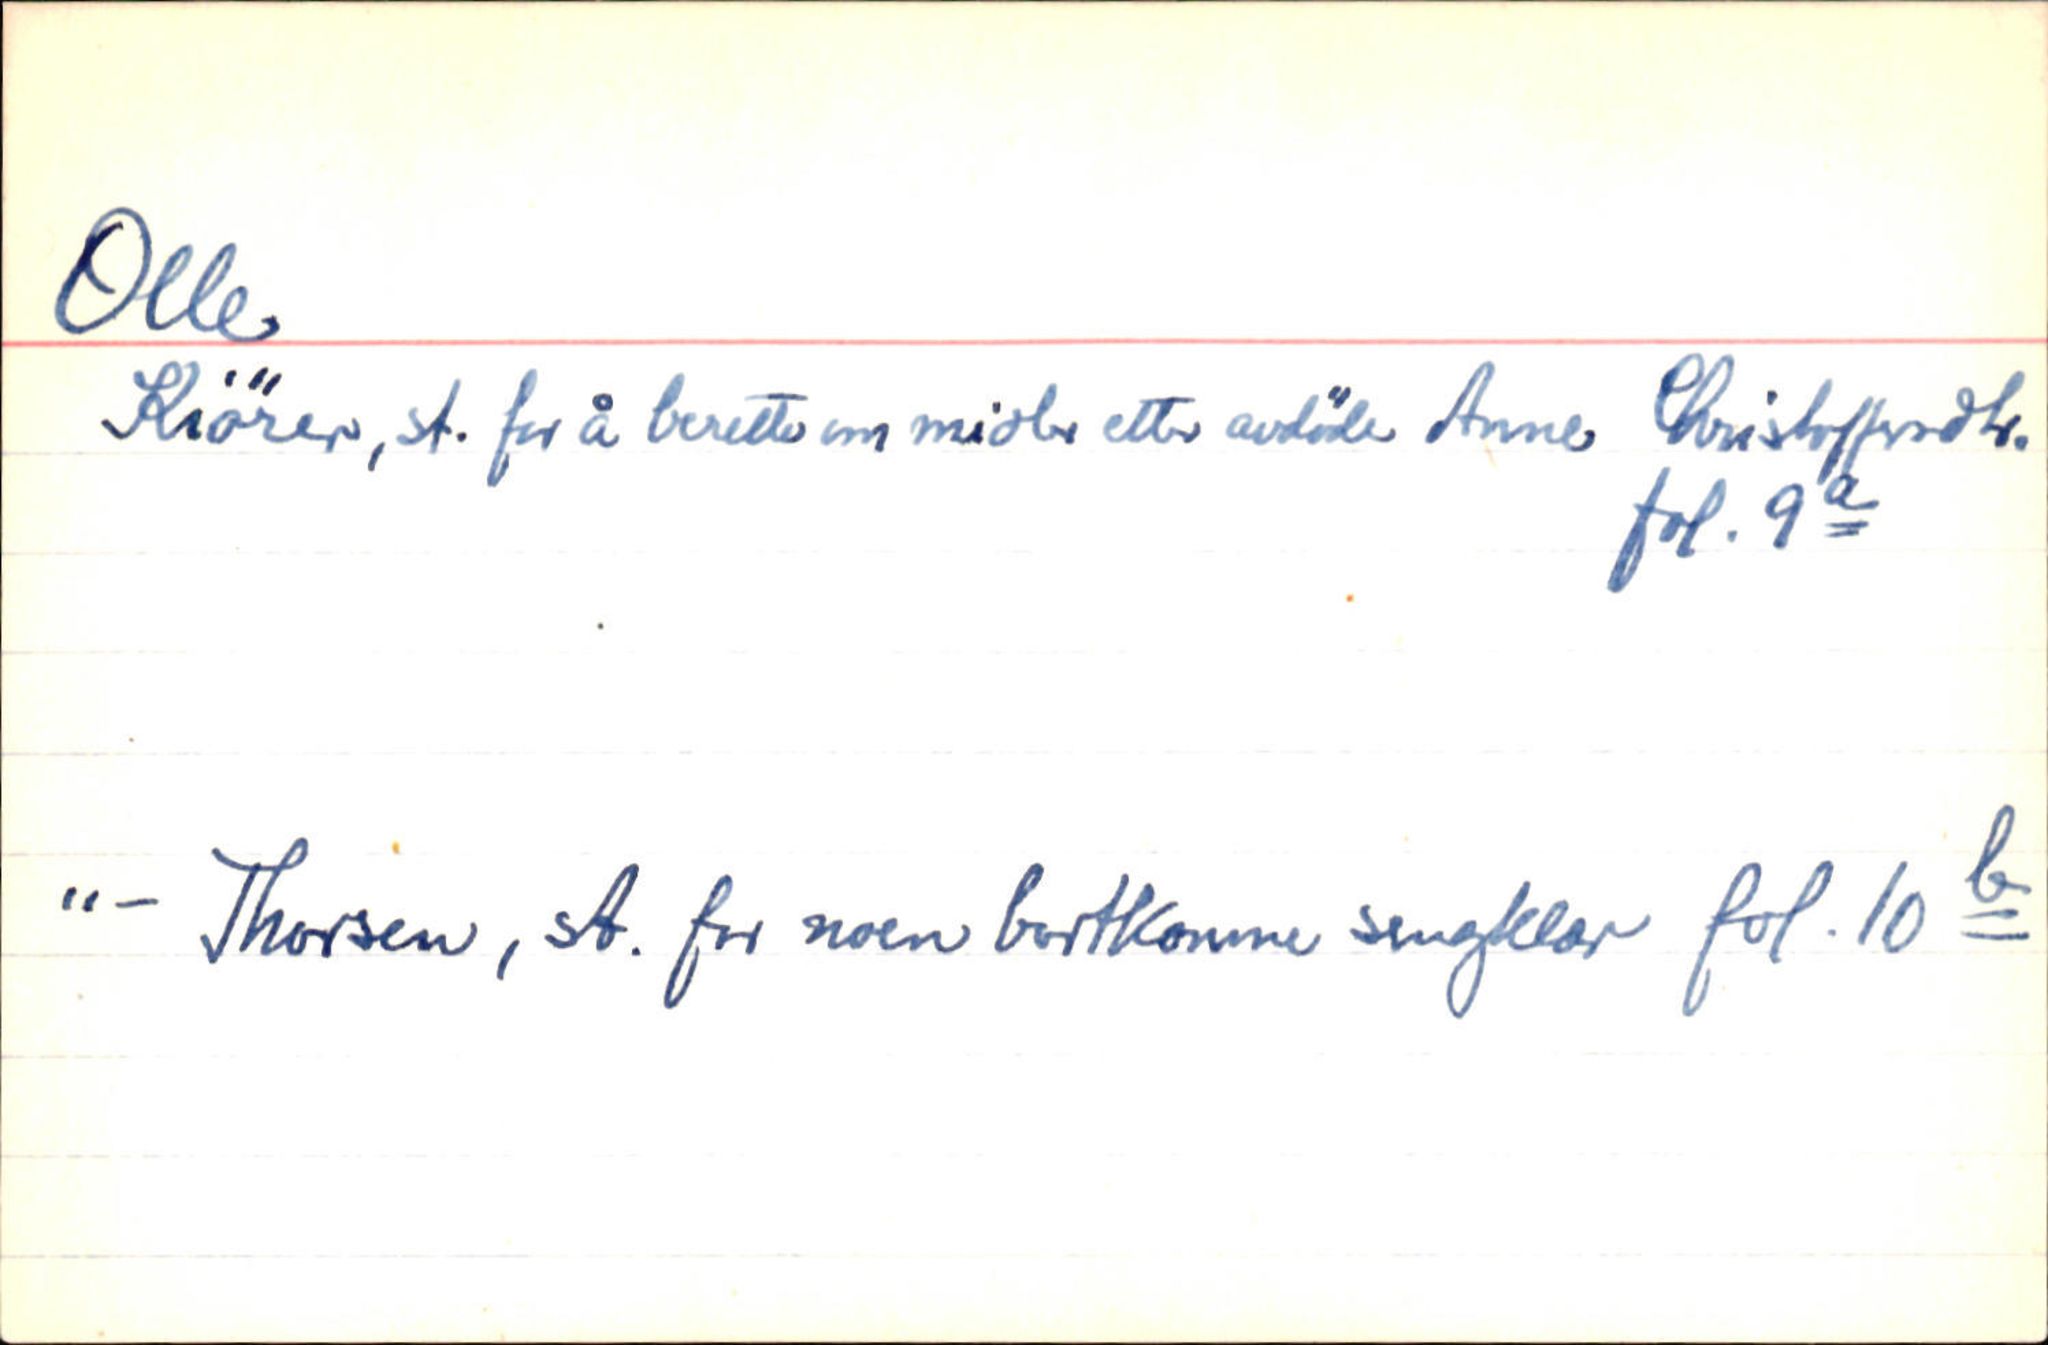 Olle
Kiören, st. for å berette om midler etter avdöde Anne Christoffersdtr.
fol. 9 a
"- Thorsen, st. for noen bortkomne sengklær fol. 10 b